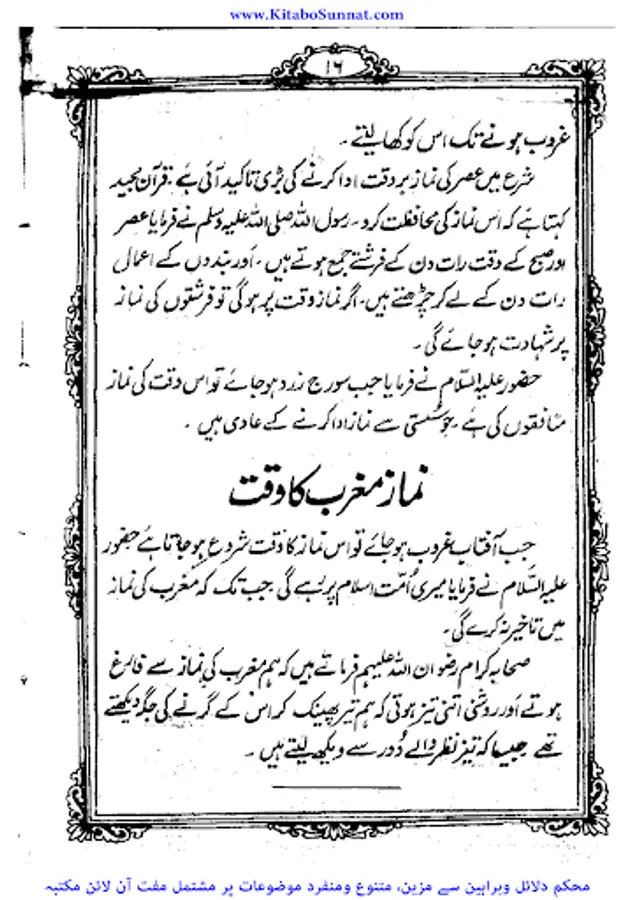 www.KitaboSunnat.com
۱۶
غروب ہونے تک اس کو کھا لیتے ۔
شرع میں عصر کی نماز بر وقت ادا کرنے کی بڑی تاکید آئی ہے ۔ قرآن مجید
کہتا ہے کہ اس نماز کی محافظت کرو ۔ رسول اللہ صلی اللہ علیہ وسلم نے فرمایا عصر
اور صبح کے وقت رات دن کے فرشتے جمع ہوتے ہیں ۔ اور بندوں کے اعمال
رات دن کے لے کر چڑھتے ہیں ۔ اگر نماز وقت پر ہوگی تو فرشتوں کی نماز
پر شہادت ہو جائے گی ۔
حضور علیہ السّلام نے فرمایا جب سورج زرد ہو جائے تو اس وقت کی نماز
منافقوں کی ہے ۔ جو سُستی سے نماز ادا کرنے کے عادی ہیں ۔
نماز مغرب کا وقت
جب آفتاب غروب ہو جائے تو اس نماز کا وقت شروع ہو جاتا ہے حضور
علیہ السّلام نے فرمایا میری اُمّت اسلام پر رہے گی جب تک کہ مغرب کی نماز
میں تاخیر نہ کرے گی ۔
صحابہ کرام رضوان اللہ علیہم فرماتے ہیں کہ ہم مغرب کی نماز سے فارغ
ہوتے اور روشنی اتنی تیز ہوتی کہ ہم تیر پھینک کر اس کے گرنے کی جگہ دیکھتے
تھے جیسا کہ تیز نظر والے دُور سے دیکھ لیتے ہیں ۔
محکم دلائل وبراہین سے مزین، متنوع ومنفرد موضوعات پر مشتمل مفت آن لائن مکتبہ